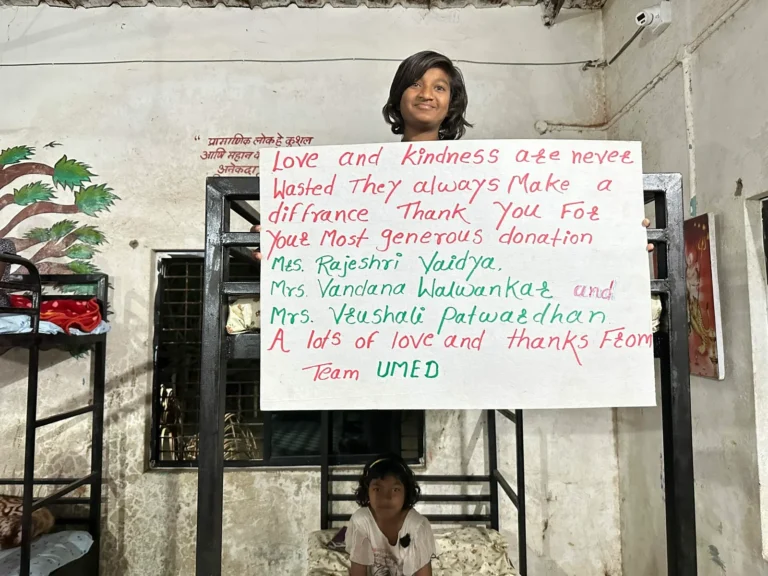 " प्रामाणिक लोक हे कुशल
आणि महान
अनेकदा
Love and kindness are never
Wasted They always Make a
diffrance Thank You For
Your Most generous donation
Mrs. Rajeshri Vaidya.
Mrs. Vandana Walwankar and
Mrs. Vrushali Patwardhan
A lots of love and thanks From
Team UMED